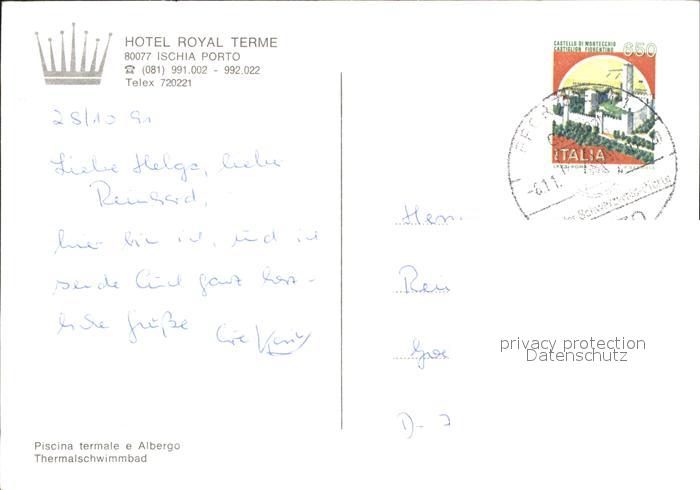 HOTEL ROYAL TERME
80077 ISCHIA PORTO
☎ (081) 991.002 - 992.022
Telex 720221
28/10 91
Liebe Helga, lieber
Reinhard,
hier bin ich, und ich
sende Euch ganz herz-
liche Grüße
CASTELLO DI MONTECCHIO
CASTIGLION FIORENTINO
650
ITALIA
Herrn
Rein
D- 7
privacy protection
Datenschutz
Piscina termale e Albergo
Thermalschwimmbad